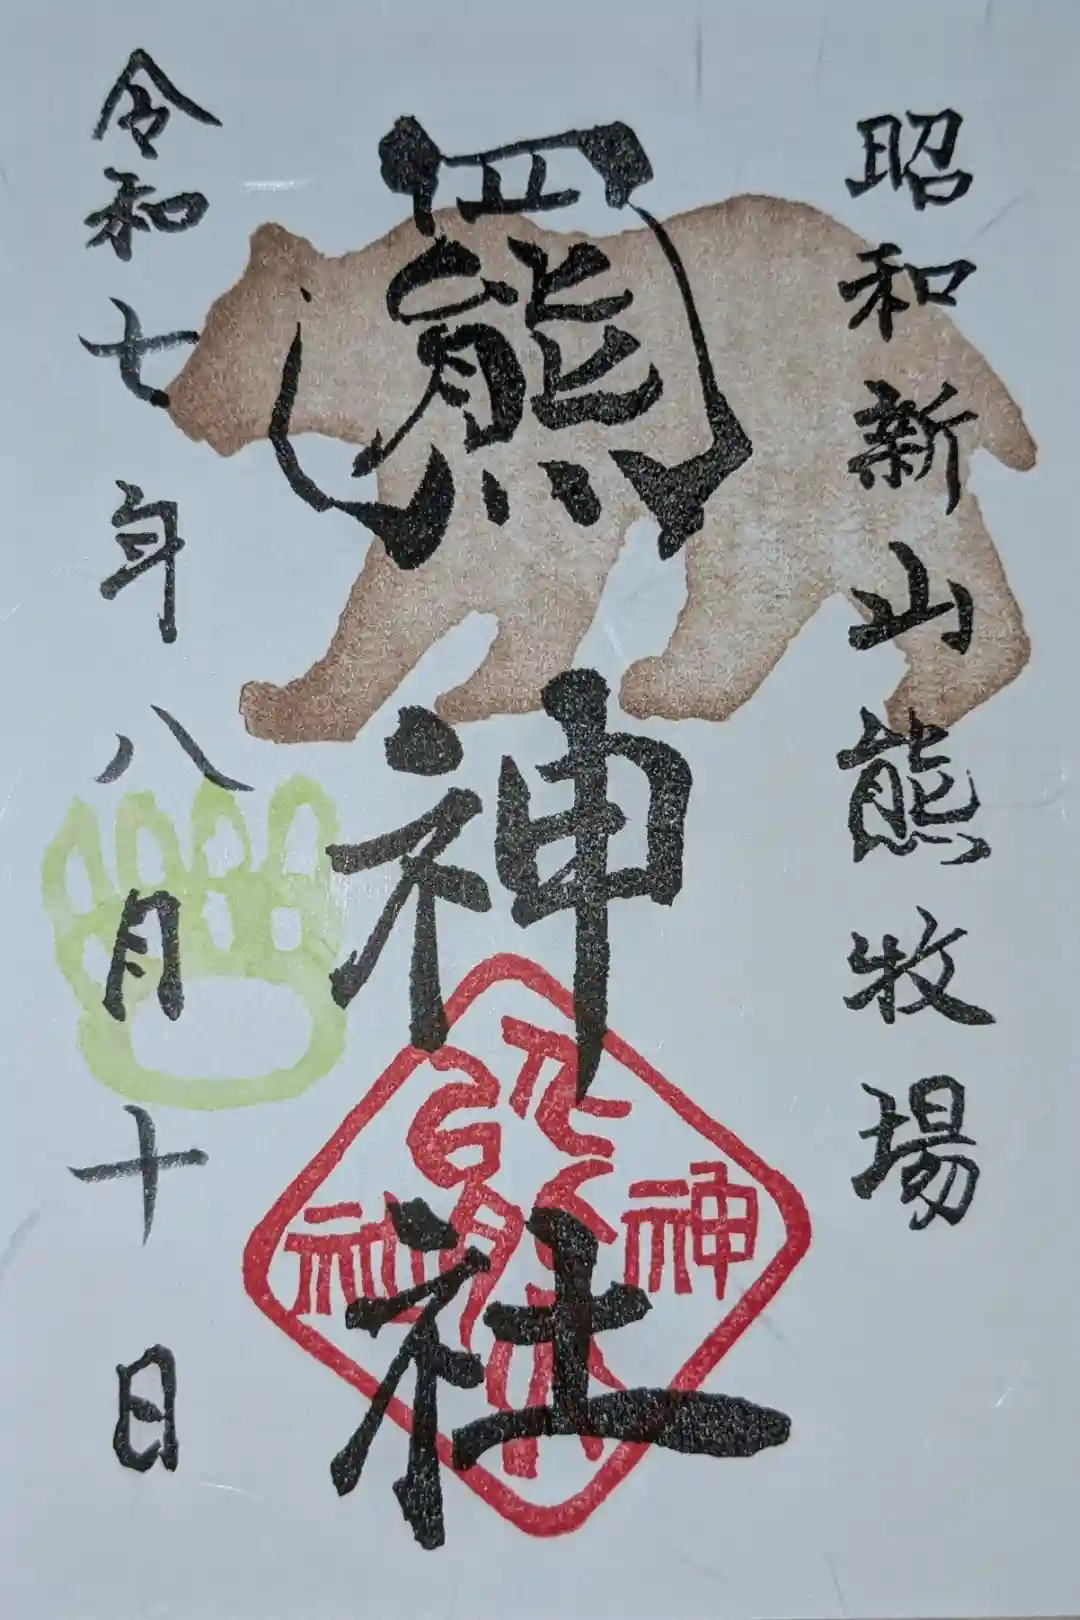 昭和新山熊牧場
羆神社
熊神社
令和七年八月十日